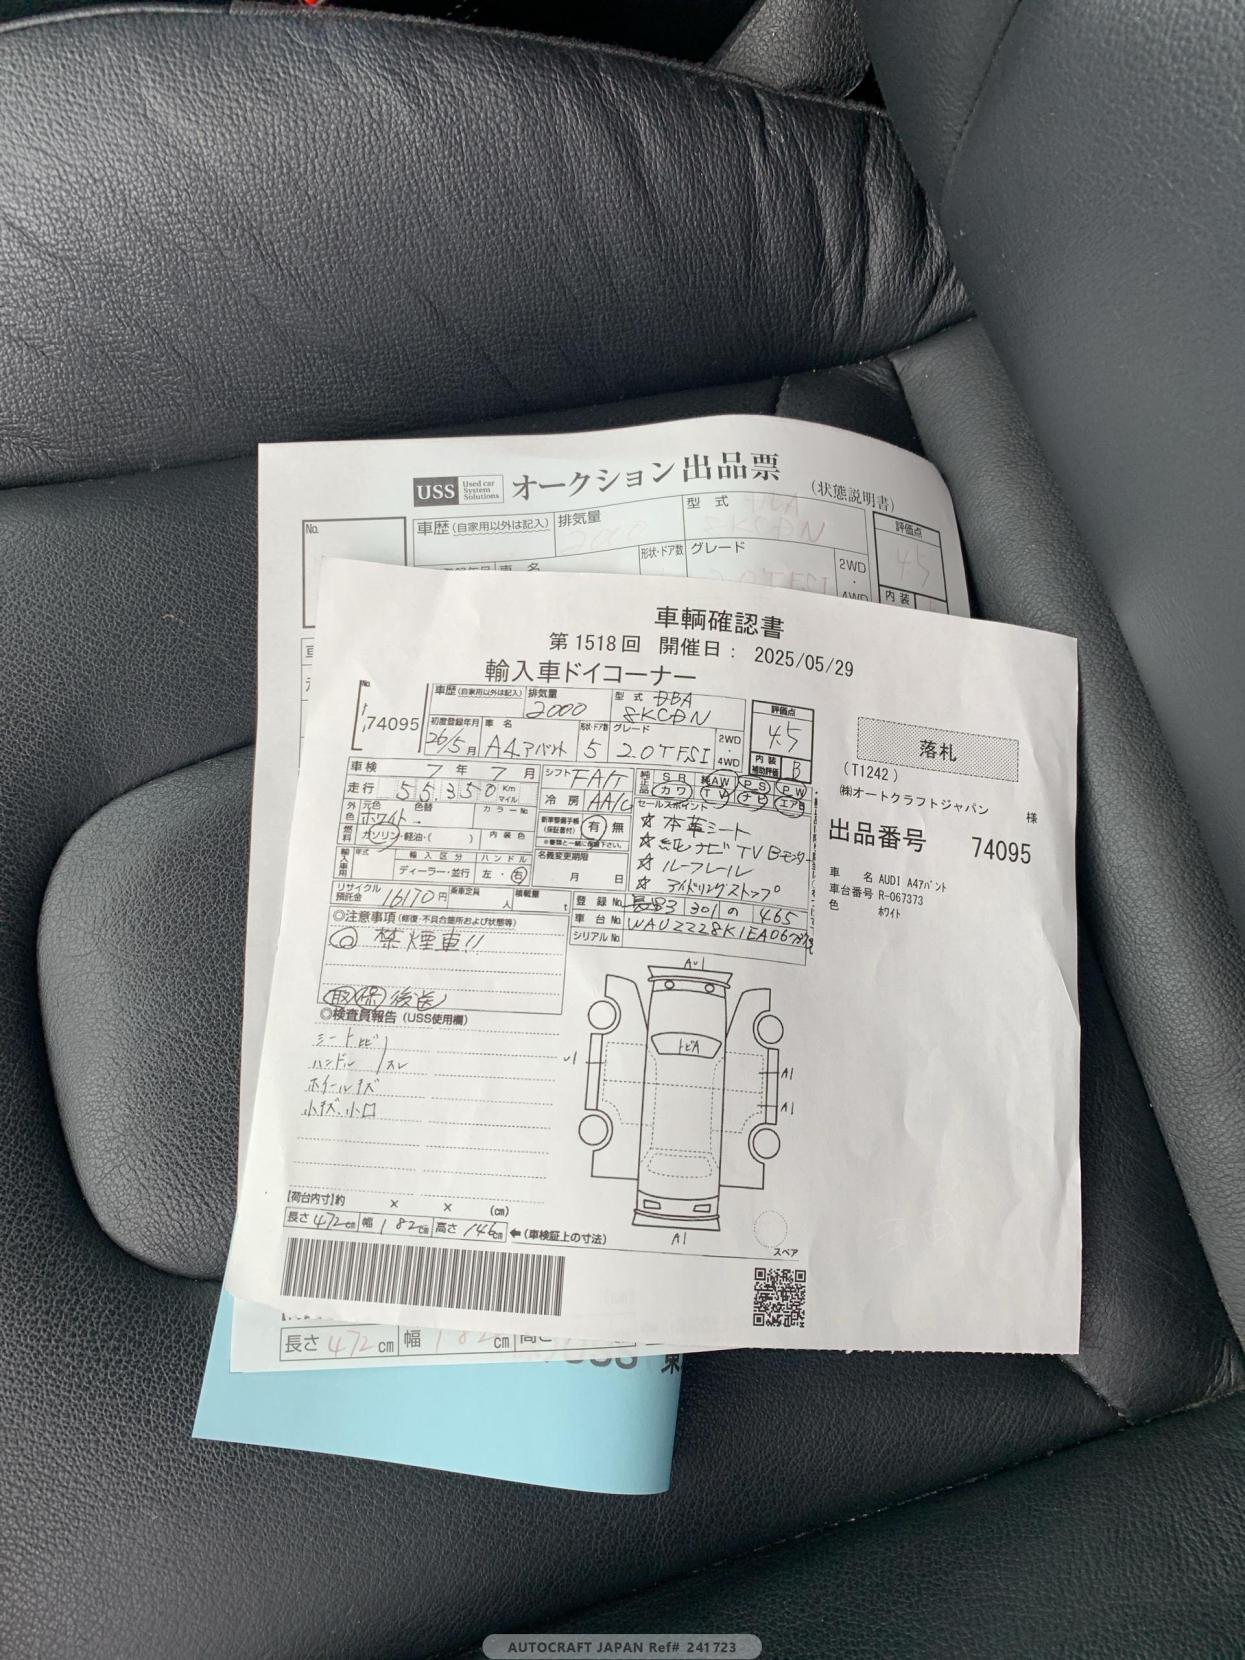 USS Used car System Solutions オークション出品票 (状態説明書)
No.
車歴(自家用以外は記入) 排気量 2000 型式 DBA 8KCDN 評価点 4.5
車名 形状・ドア数 グレード 2.0TFSI 2WD・4WD 内装
車輌確認書
第1518回 開催日: 2025/05/29
輸入車ドイコーナー
No. 74095
車歴(自家用以外は記入) 排気量 2000 型式 DBA 8KCDN
評価点 4.5
初度登録年月 26/5月 車名 A4アバント 形状・ドア数 5 グレード 2.0TFSI 2WD・4WD
内装補助評価 B
落札
(T1242)
㈱オートクラフトジャパン 様
出品番号 74095
車名 AUDI A4アバント
車台番号 R-067373
色 ホワイト
車検 7年7月 シフト FA/T
走行 55,350 Km マイル 冷房 AA/C
純正品 SR 純AW PS PW カワ TV ナビ エアB
外色 元色 ホワイト 色替 カラーNo.
燃料 ガソリン・軽油・( ) 内装色
新車整備手帳(保証書付) 有 無
※書類と一緒に保管下さい。
輸入車用 年式 輸入区分 ディーラー・並行 ハンドル 左・右
名義変更期限 月 日
リサイクル預託金 16170円 乗車定員 人 積載量 t
セールスポイント
☆本革シート
☆純ナビTV Bモニター
☆ルーフレール
☆アイドリングストップ
登録No. 長野 301 の 465
車台No. WAUZZZ8K1EA067373
シリアルNo.
◎注意事項(修復・不具合箇所および状態等)
◎禁煙車!!
取保後送
◎検査員報告(USS使用欄)
シート
ハンドル スレ
ホイールキズ
小キズ、小凹
A1
トビA
A1
A1
A1
スペア
【荷台内寸】約 × × (cm)
長さ 472cm 幅 182cm 高さ 146cm ←(車検証上の寸法)
長さ 472cm 幅 182cm 高さ
AUTOCRAFT JAPAN Ref# 241723